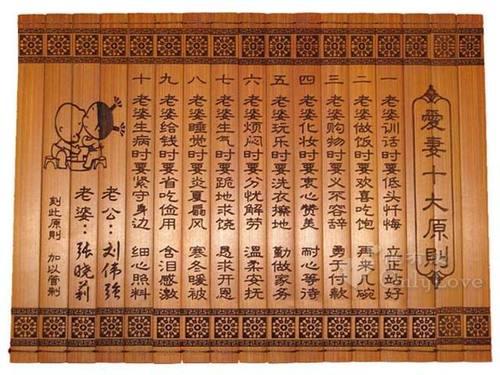 愛妻十大原則
一 老婆训话时要低头忏悔 立正站好
二 老婆做饭时要欢喜吃饱 再来几碗
三 老婆购物时要义不容辞 勇于付款
四 老婆化妆时要衷心赞美 耐心等待
五 老婆玩乐时要洗衣擦地 勤做家务
六 老婆烦闷时要分忧解劳 温柔安抚
七 老婆生气时要跪地求饶 恳求开恩
八 老婆睡觉时要炎夏扇风 寒冬暖被
九 老婆给钱时要省吃俭用 含泪感激
十 老婆生病时要紧守身边 细心照料
老公：刘伟强
老婆：张晓莉
刻此原則 加以管制